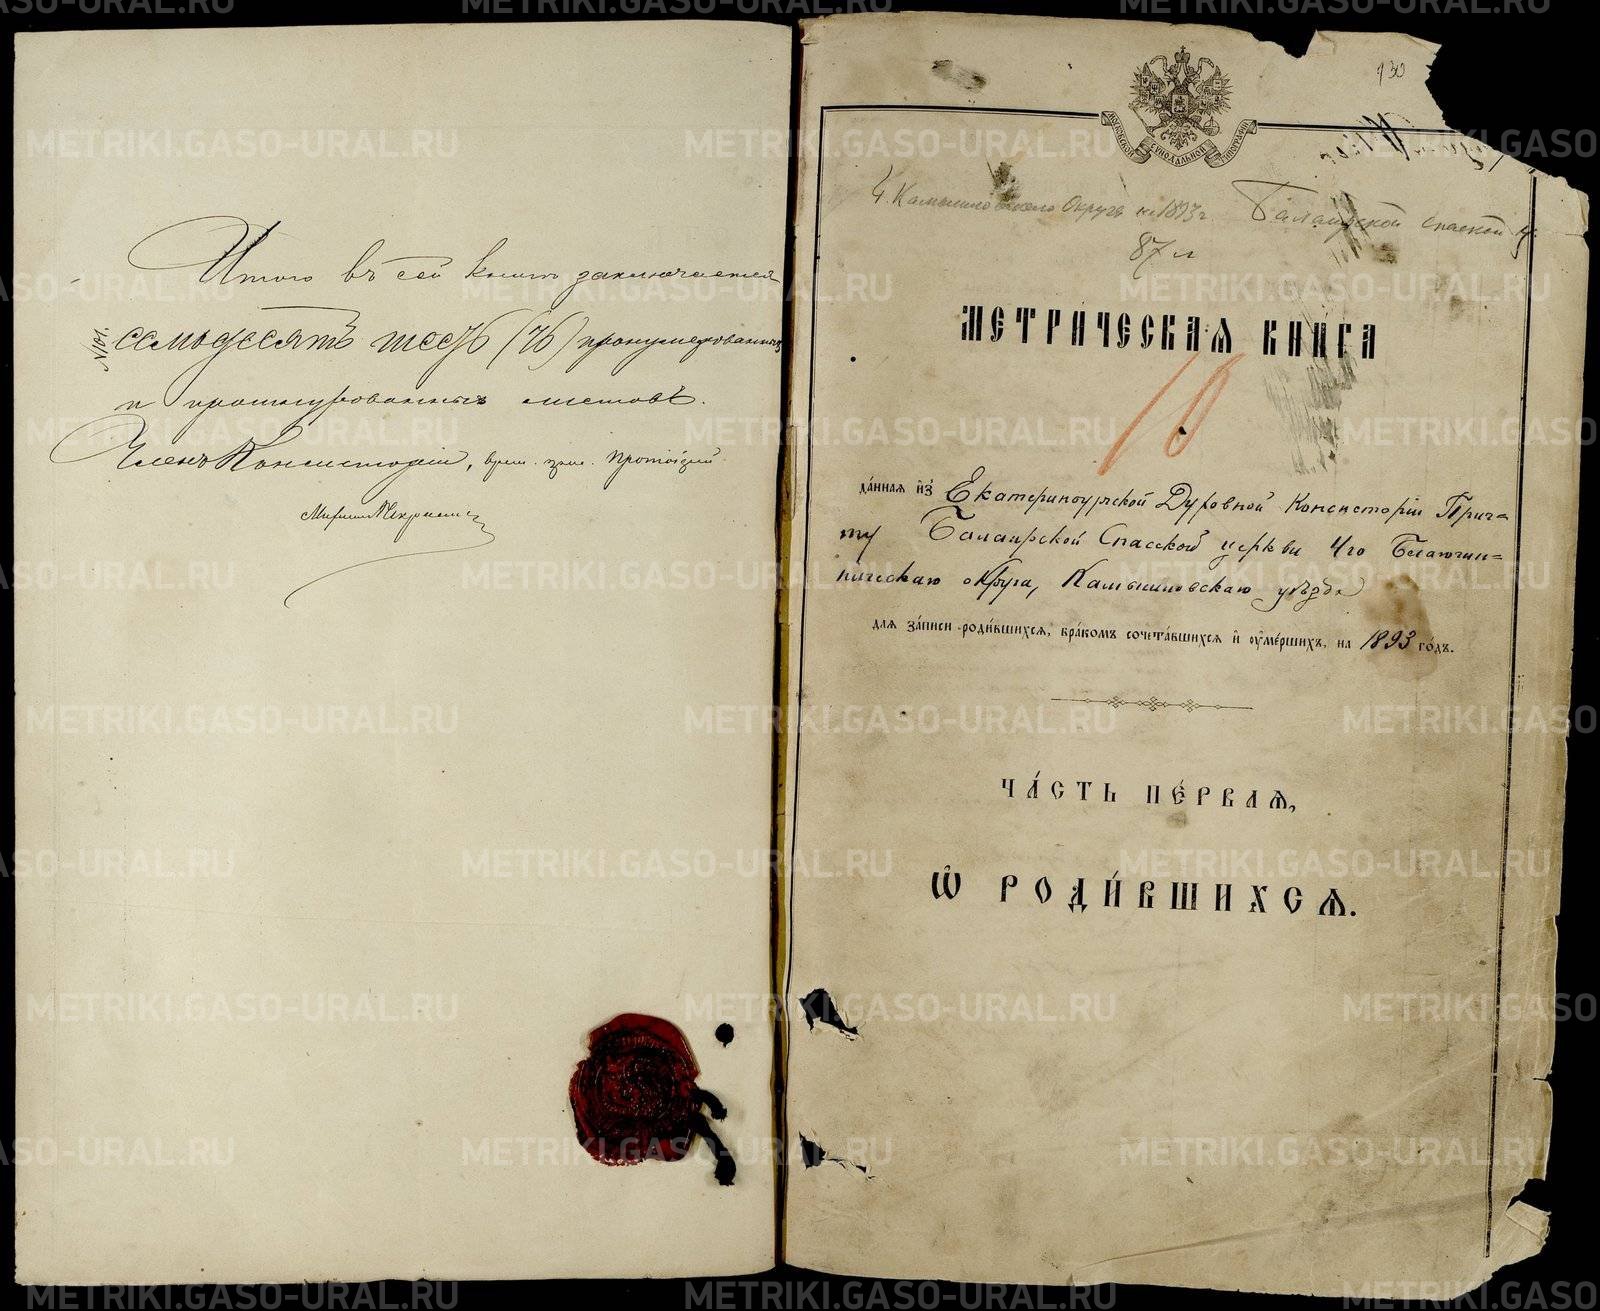 Итого въ сей книгѣ заключается
№ 101.
семьдесятъ шесть (76) пронумерованныхъ
и прошнурованныхъ листовъ.
Членъ Консисторіи, Протоіерей
930
МОСКОВСКОЙ СѴНОДАЛЬНОЙ ТИПОГРАФІИ
4. Камышловскаго Округа на 1893 г. Балаирской спаской ц.
87 л
МЕТРИ́ЧЕСКАѦ КНИ́ГА
10
да́ннаѧ и҆з̾ Екатеринбургской Духовной Консисторіи Прич=
ту Балаирской Спасской церкви 4го Благочин=
ническаго округа, Камышловскаго уѣзда
длѧ за́писи роди́вшихсѧ, бра́комъ сочета́вшихсѧ и҆ ᲂу҆ме́ршихъ, на 1893 го́дъ.
ЧА́СТЬ ПЕ́РВАѦ,
Ѽ РОДИ́ВШИХСѦ.
METRIKI.GASO-URAL.RU